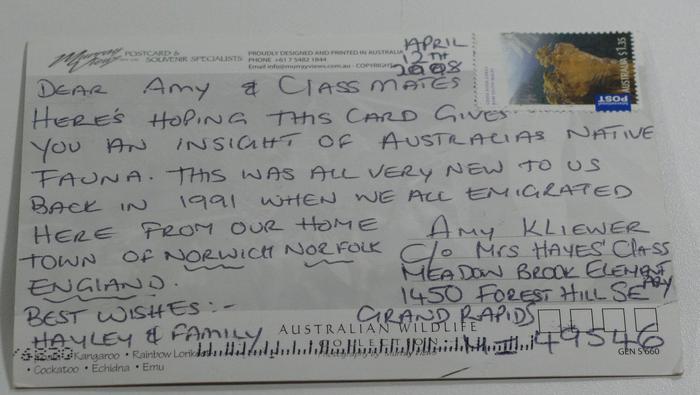 Murray Views POSTCARD & SOUVENIR SPECIALISTS
PROUDLY DESIGNED AND PRINTED IN AUSTRALIA
PHONE +61 7 5482 1844
Email info@murrayviews.com.au · COPYRIGHT
APRIL 12TH 2008
$1.35
AUSTRALIA
POST
DEAR AMY & CLASSMATES
HERE'S HOPING THIS CARD GIVES
YOU AN INSIGHT OF AUSTRALIAS NATIVE
FAUNA. THIS WAS ALL VERY NEW TO US
BACK IN 1991 WHEN WE ALL EMIGRATED
HERE FROM OUR HOME
TOWN OF NORWICH NORFOLK
ENGLAND.
BEST WISHES:-
HAYLEY & FAMILY
AMY KLIEWER
C/o MRS HAYES' CLASS
MEADOW BROOK ELEMENTARY
1450 FOREST HILL SE
GRAND RAPIDS
MI 49546
AUSTRALIAN WILDLIFE
COLLECTION
Photography by Murray Views
Kangaroo • Rainbow Lorikeet
• Cockatoo • Echidna • Emu
GEN S 660